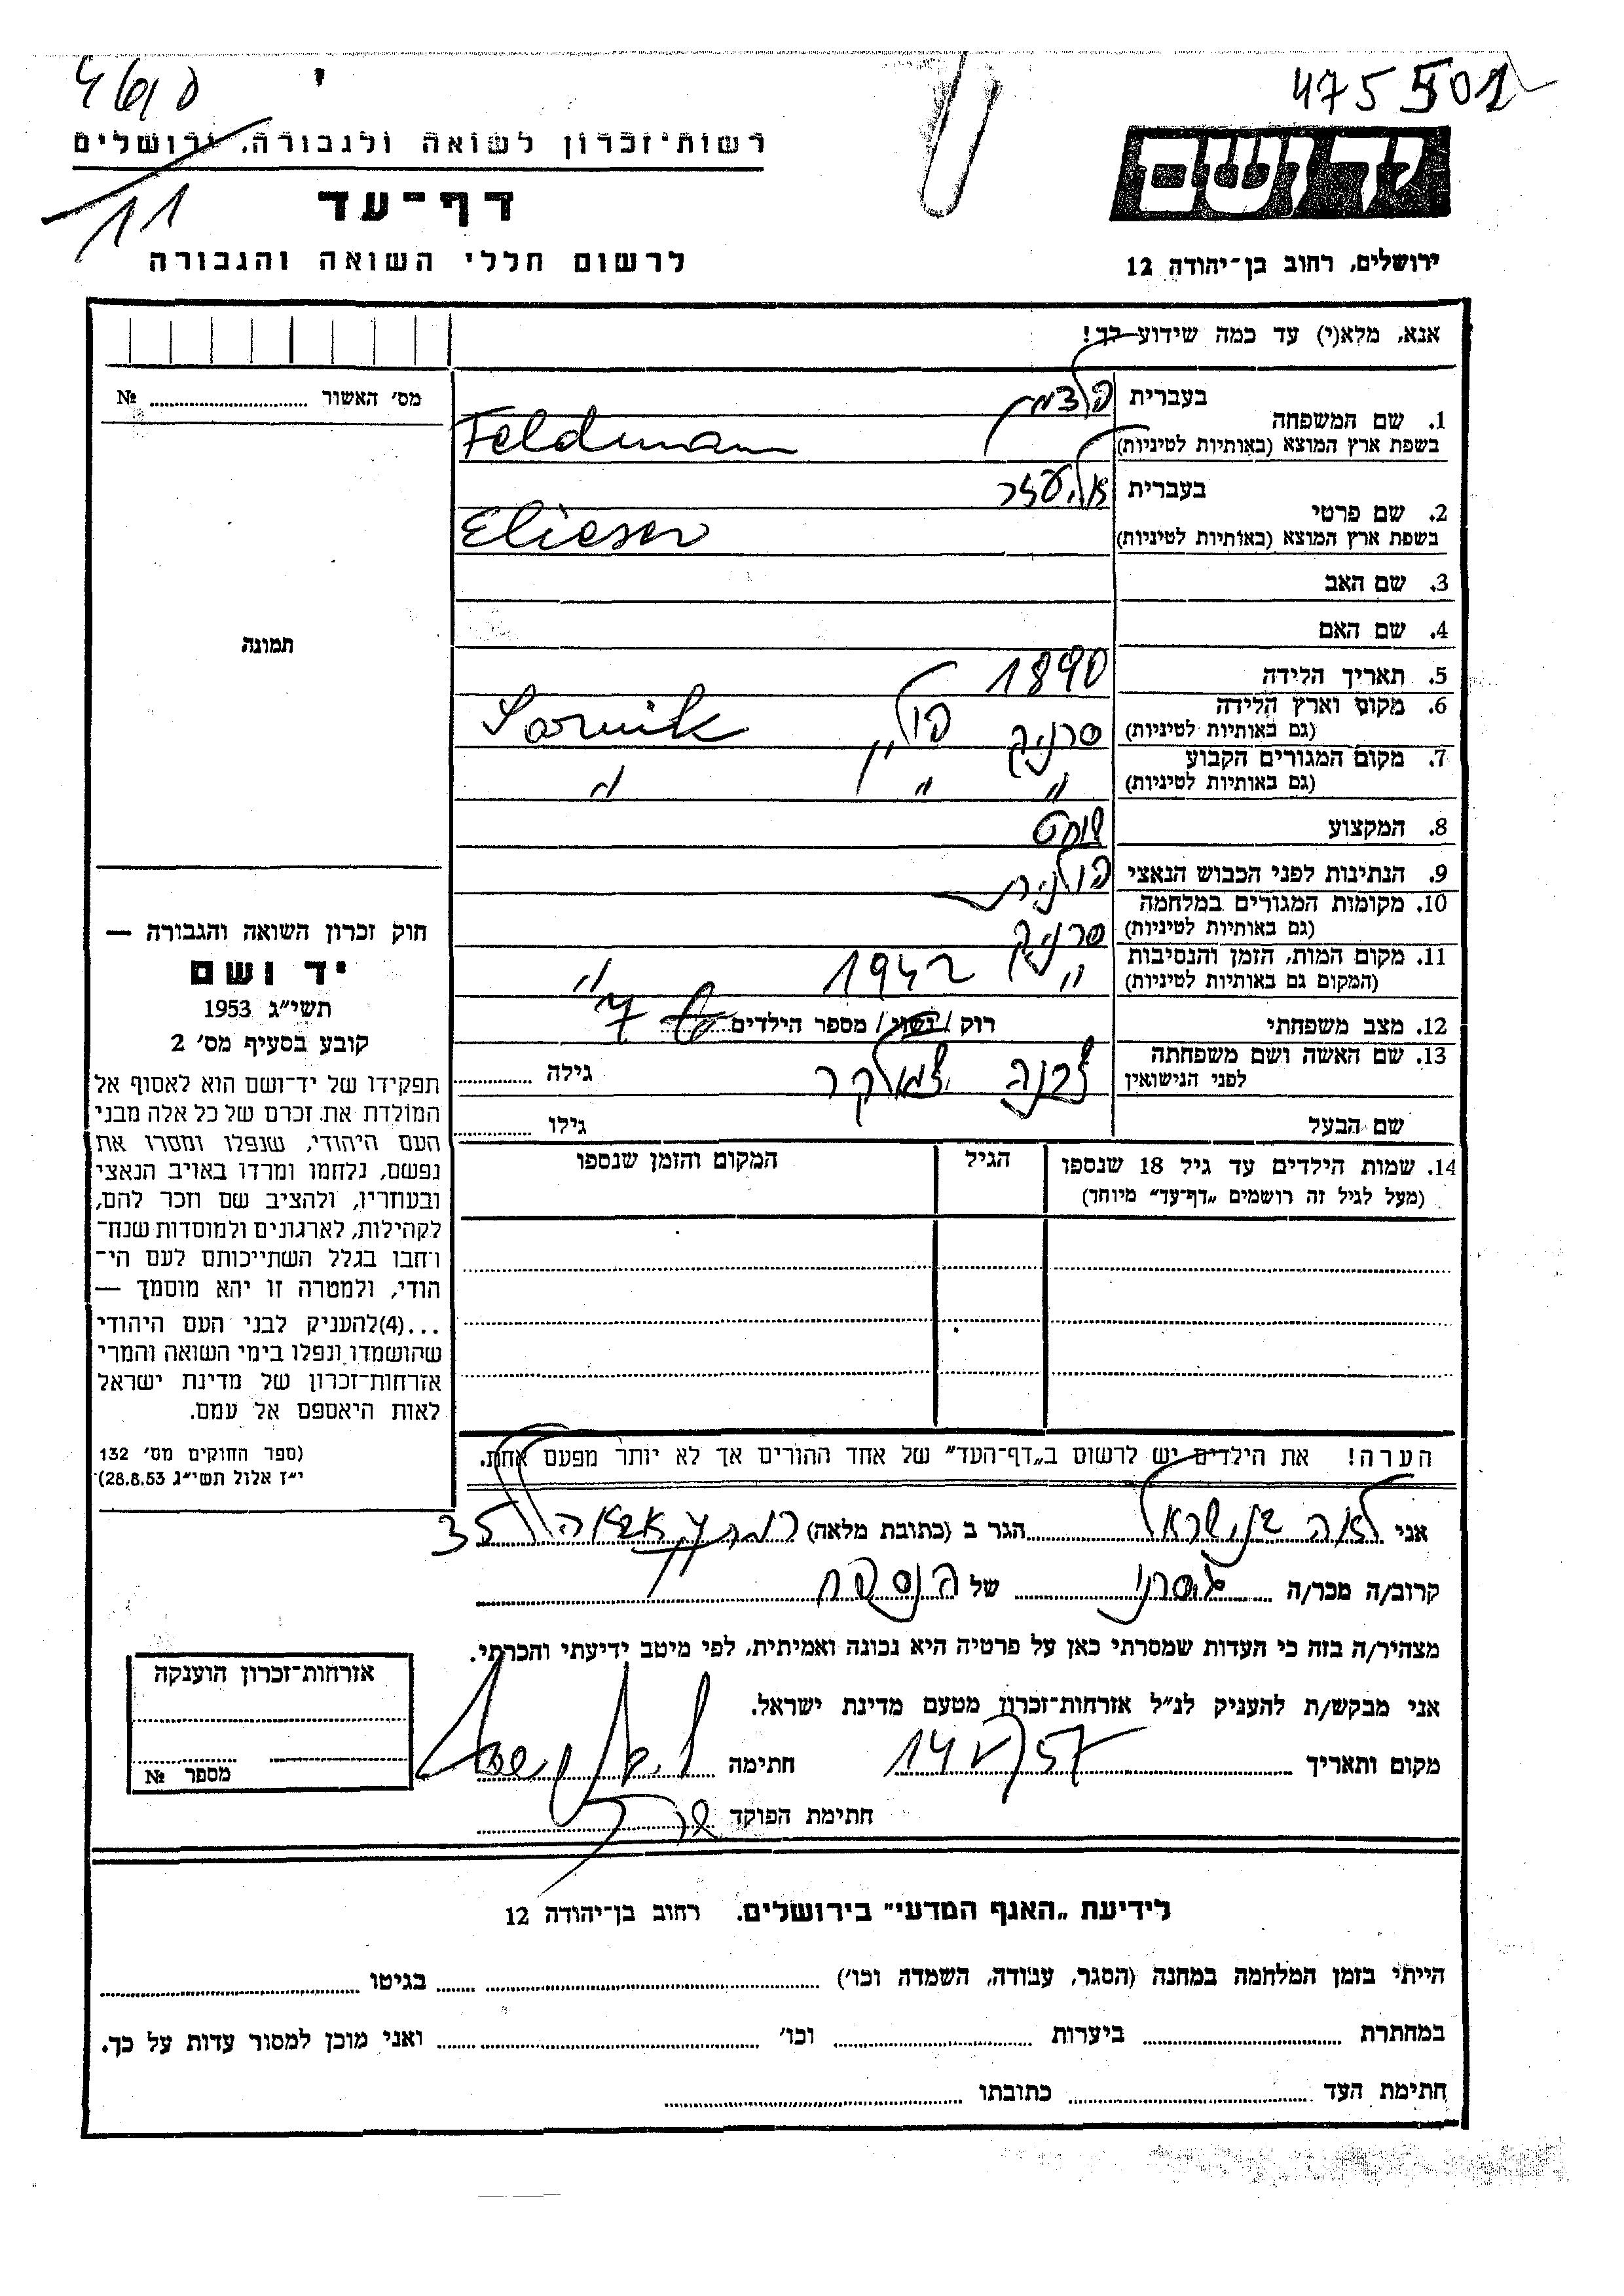 4610
475501
רשות־זכרון לשואה ולגבורה, ירושלים
11
דף־עד
לרשום חללי השואה והגבורה
ידושם
ירושלים, רחוב בן־יהודה 12
אנא, מלא(י) עד כמה שידוע לך!
מס׳ האשור № 
1. שם המשפחה
בעברית פלדמן
בשפת ארץ המוצא (באותיות לטיניות) Feldman
2. שם פרטי
בעברית אליעזר
בשפת ארץ המוצא (באותיות לטיניות) Elieser
3. שם האב
4. שם האם
5. תאריך הלידה 1890
6. מקום וארץ הלידה
(גם באותיות לטיניות) סרניק פולין Sarnik
7. מקום המגורים הקבוע
(גם באותיות לטיניות) " " "
8. המקצוע שוחט
9. הנתינות לפני הכבוש הנאצי פולנית
10. מקומות המגורים במלחמה
(גם באותיות לטיניות) סרניק
11. מקום המות, הזמן והנסיבות
(המקום גם באותיות לטיניות) " 1942 "
12. מצב משפחתי רוק / נשוי / מספר הילדים 7
13. שם האשה ושם משפחתה
לפני הנישואין גילה
שם הבעל גילו
14. שמות הילדים עד גיל 18 שנספו
(מעל לגיל זה רושמים „דף־עד״ מיוחד)
הגיל
המקום והזמן שנספו
הערה! את הילדים יש לרשום ב„דף־העד״ של אחד ההורים אך לא יותר מפעם אחת.
תמונה
חוק זכרון השואה והגבורה —
יד ושם
תשי״ג 1953
קובע בסעיף מס׳ 2
תפקידו של יד־ושם הוא לאסוף אל
המולדת את זכרם של כל אלה מבני
העם היהודי, שנפלו ומסרו את
נפשם, נלחמו ומרדו באויב הנאצי
ובעוזריו, ולהציב שם וזכר להם,
לקהילות, לארגונים ולמוסדות שנח־
רחבו בגלל השתייכותם לעם הי־
הודי, ולמטרה זו יהא מוסמך —
...(4)להעניק לבני העם היהודי
שהושמדו ונפלו בימי השואה והמרי
אזרחות־זכרון של מדינת ישראל
לאות היאספם אל עמם.
(ספר החוקים מס׳ 132
י״ז אלול תשי״ג 28.8.53)
אני לאה בן ישראל הגר ב (כתובת מלאה) 35
קרוב/ה מכר/ה של הנספה
מצהיר/ה בזה כי העדות שמסרתי כאן על פרטיה היא נכונה ואמיתית, לפי מיטב ידיעתי והכרתי.
אני מבקש/ת להעניק לנ״ל אזרחות־זכרון מטעם מדינת ישראל.
מקום ותאריך 14 V 57 חתימה
חתימת הפוקד
אזרחות־זכרון הוענקה
מספר №
לידיעת „האגף המדעי״ בירושלים. רחוב בן־יהודה 12
הייתי בזמן המלחמה במחנה (הסגר, עבודה, השמדה וכו׳) בגיטו
במחתרת ביערות וכו׳ ואני מוכן למסור עדות על כך.
חתימת העד כתובתו